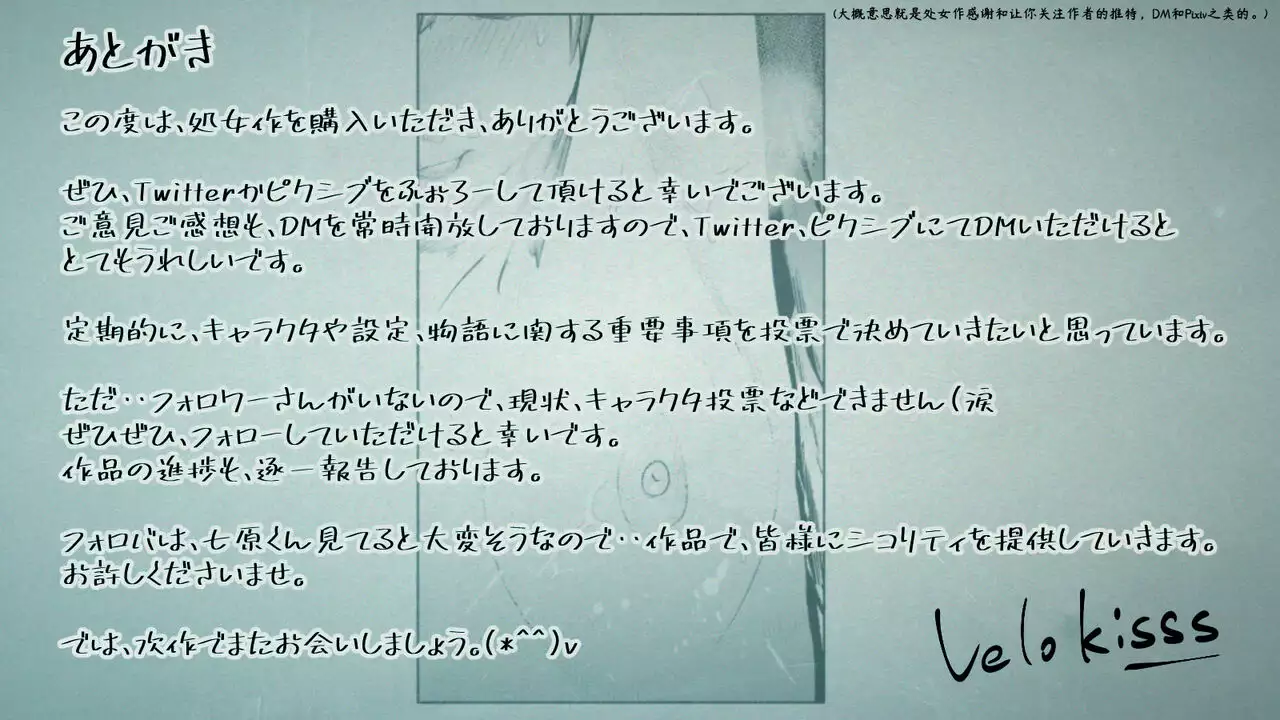 (大概意思就是处女作感谢和让你关注作者的推特，DM和Pixiv之类的。)
あとがき
この度は、処女作を購入いただき、ありがとうございます。
ぜひ、Twitterかピクシブをふぉろーして頂けると幸いでございます。
ご意見ご感想も、DMを常時開放しておりますので、Twitter、ピクシブにてDMいただけると
とてもうれしいです。
定期的に、キャラクタや設定、物語に関する重要事項を投票で決めていきたいと思っています。
ただ‥フォロワーさんがいないので、現状、キャラクタ投票などできません(涙
ぜひぜひ、フォローしていただけると幸いです。
作品の進捗も、逐一報告しております。
フォロバは、七原くん見てると大変そうなので‥作品で、皆様にシコリティを提供していきます。
お許しくださいませ。
では、次作でまたお会いしましょう。(*^^)v
Velo kisss